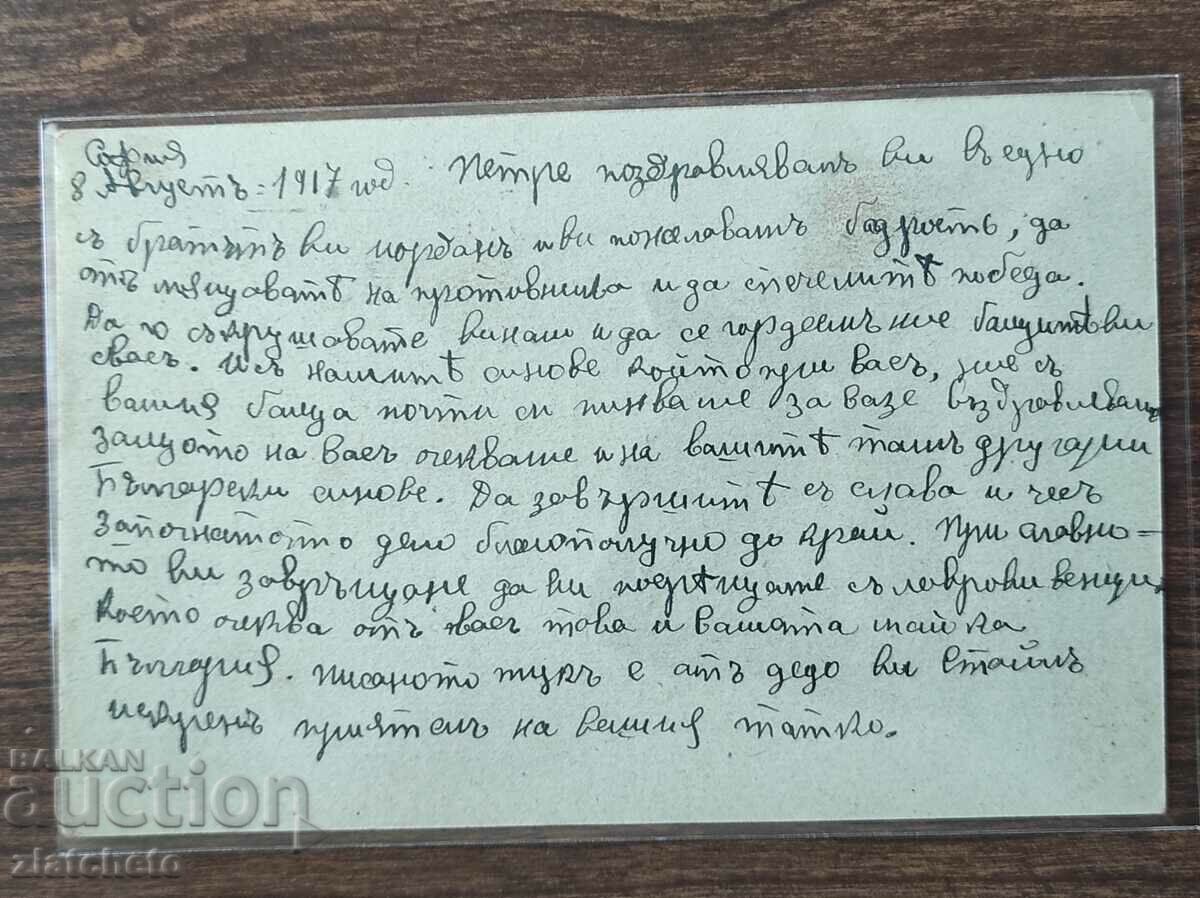 София
8 Августъ = 1917 год. Петре поздравлявамъ ви въедно
съ братътъ ви Иорданъ и ви пожелавамъ бодрость, да
отмъщаватѣ на противника и да спечелитѣ победа.
Да го съкрушавате винаги и да се гордеемъ ние бащитѣ ви
съвасъ. Исъ нашитѣ синове койтопри васъ, ние съ
вашия баща почти си пийваме за ваше въздравлявамъ
защото на васъ очакваме и на вашитѣ тамъ другари
Български синове. Да завършитѣ съ слава и чесъ
започнатото дело благополучно до край. При славно=
то ви завръщане да ви посрѣщате съ лаврови венци
което очаква отъ васъ това и вашата майка
България. Писаното тукъ е отъ дедо ви Стоилъ
искренъ приятелъ на вашия татко.
BALKAN
auction
zlatcheto